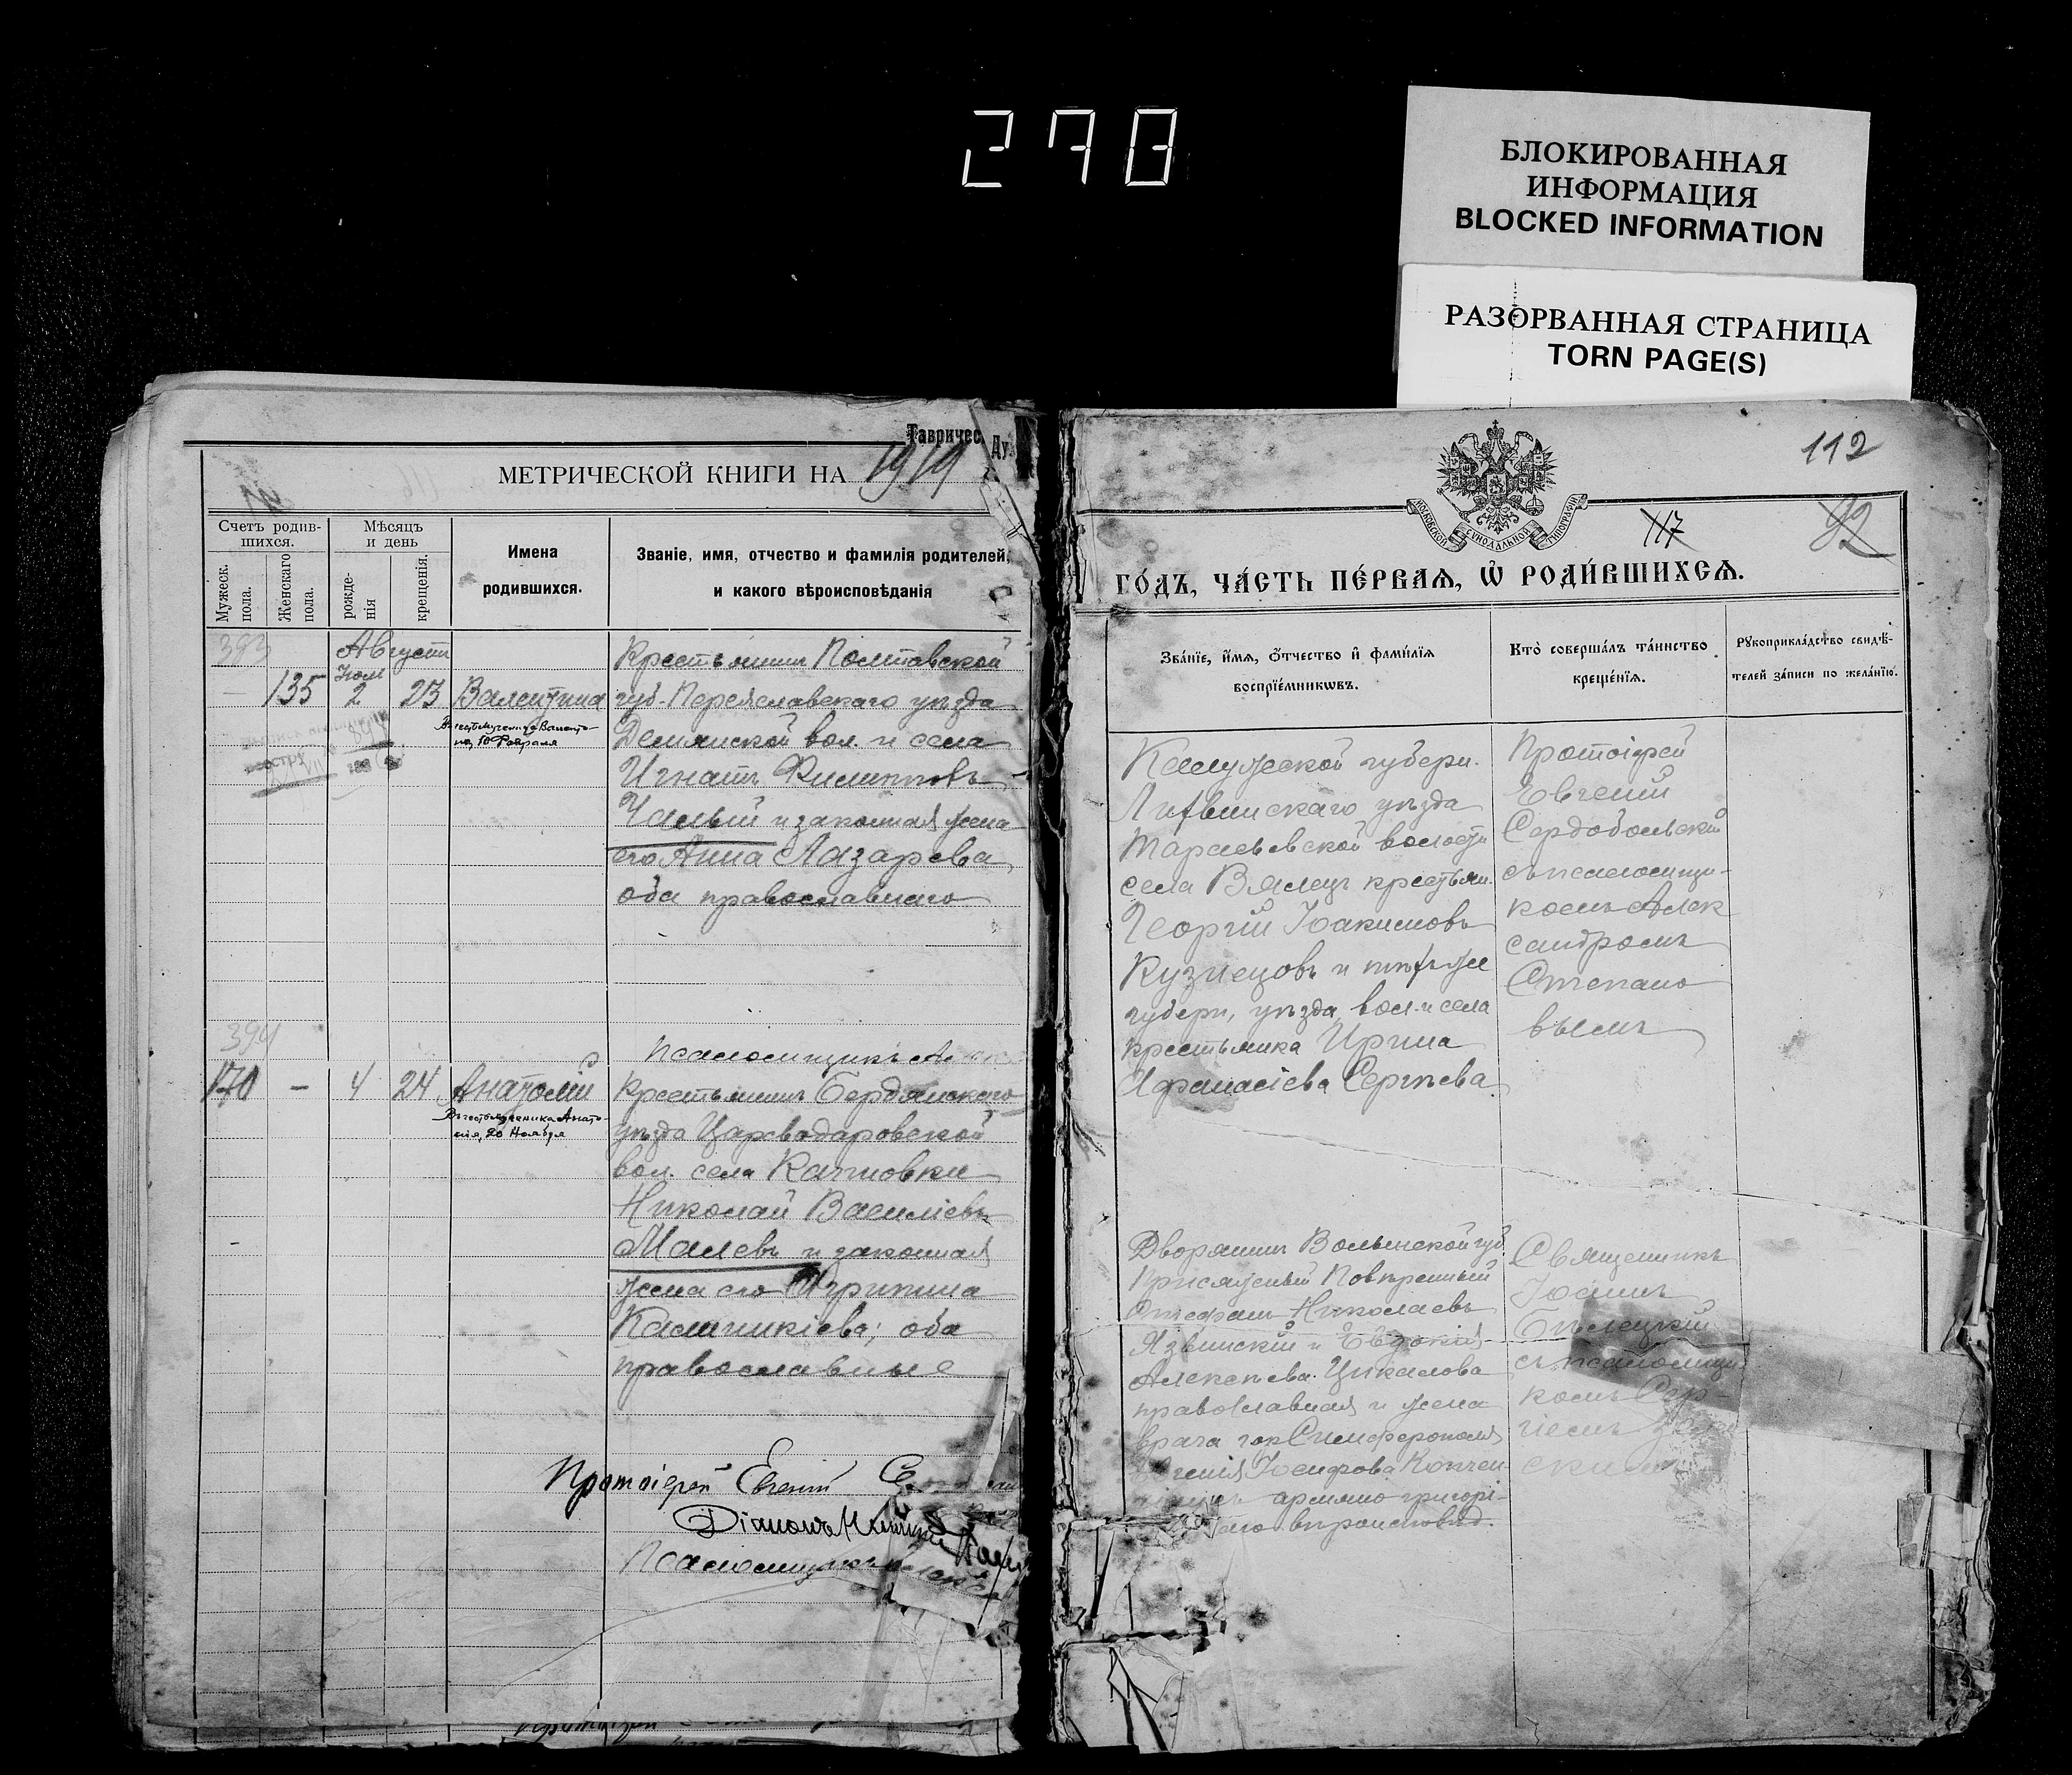 270
БЛОКИРОВАННАЯ
ИНФОРМАЦИЯ
BLOCKED INFORMATION
РАЗОРВАННАЯ СТРАНИЦА
TORN PAGE(S)
Тавричес
Ду
МЕТРИЧЕСКОЙ КНИГИ НА 1919
Счетъ родив-
шихся.
Мужеск. пола.
Женскаго пола.
Мѣсяцъ
и день
рожде-
нія
крещенія.
Имена
родившихся.
Званіе, имя, отчество и фамилія родителей,
и какого вѣроисповѣданія
393
Августъ
Іюля
— 135 2 23 Валентина
Въ честь мученицы Валенти-
ны, 10 Февраля
Крестьянинъ Полтавской
губ. Переяславскаго уѣзда
Демянской вол. и села
Игнатъ Филипповъ
Чалый и законная жена
его Анна Лазарева,
оба православнаго
394
Псаломщикъ
170 — 4 24 Анатолій
Въ честь мученика Анато-
лія, 20 Ноября
Крестьянинъ Бердянскаго
уѣзда Цареводаровской
вол. села
Николай Василіевъ
Малевъ и законная
жена его Агрипина
Калинникіева; оба
православные
Протоіерей Евгеній
Діаконъ
Псаломщикъ
112
117
92
МОСКОВСКОЙ СѴНОДАЛЬНОЙ ТИПОГРАФІИ
ГО́ДЪ, ЧА́СТЬ ПЕ́РВАЯ, Ѡ҆ РОДИ́ВШИХСЯ.
Зва́нїе, и҆́мя, ѻ҆́тчество и҆ фами́лїя
воспрїе́мникѡвъ.
Кто̀ соверша́лъ та́инство
креще́нїя.
Рꙋкоприкла́дство свидѣ́-
телей за́писи по жела́нїю.
Калужской губерн.
Лихвинскаго уѣзда
села Вялецъ крестьян.
Георгій Іоакимовъ
Кузнецовъ и тѣхъ же
губерн, уѣзда, вол. и села
крестьянка Ирина
Афанасіева Сергѣева
Протоіерей
Евгеній
Сердобольскій
съ псаломщи-
комъ Алек
сандромъ
Степано
вымъ
Дворянинъ Волынской губ.
Присяжный Повѣренный
Стефанъ Николаевъ
Язвинскій и Евдокія
Алексѣева Цикалова
православная и жена
врача гор Симферополя
Іосифова
армяно григорі-
вѣроисповѣд.
Священникъ
Іоаннъ
Бѣлецкій
съ псаломщи
комъ Сер-
гіемъ